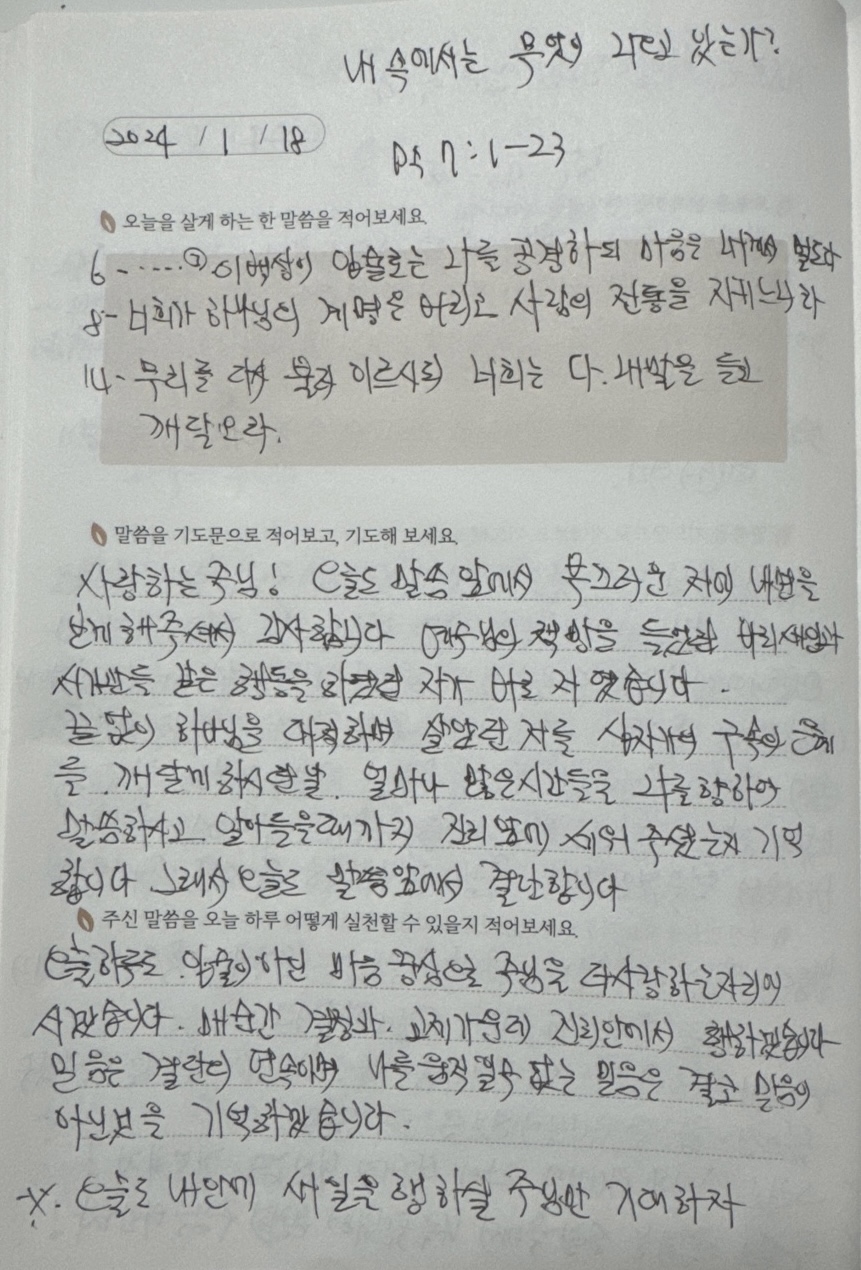 내 속에서는 무엇이 나오고 있는가?
2024 / 1 / 18
막 7:1-23
오늘을 살게 하는 한 말씀을 적어보세요.
6-······② 이 백성이 입술로는 나를 공경하되 마음은 내게서 멀도다
8- 너희가 하나님의 계명은 버리고 사람의 전통을 지키느니라
14- 무리를 다시 불러 이르시되 너희는 다. 내 말을 듣고
깨달으라.
말씀을 기도문으로 적어보고, 기도해 보세요.
사랑하는 주님! 오늘도 말씀 앞에서 부끄러운 저의 내면을
보게 해주셔서 감사합니다 예수님의 책망을 들었던 바리새인과
서기관들 같은 행동을 하였던 자가 바로 저였습니다.
끝없이 하나님을 대적하며 살았던 저를 십자가의 구속의 은혜
를 깨닫게 하시던 날. 얼마나 많은 시간들을 나를 향하여
말씀하시고 알아들을때까지 진리 앞에 세워 주셨는지 기억
합니다 그래서 오늘도 말씀 앞에서 결단합니다
주신 말씀을 오늘 하루 어떻게 실천할 수 있을지 적어보세요.
오늘 하루도 입술이 아닌 마음 중심으로 주님을 더 사랑하는 자리에
서겠습니다. 매순간 결정과. 교제 가운데 진리 안에서 행하겠습니다
믿음은 결단의 연속이며 나를 움직일 수 없는 믿음은 결코 믿음이
아닌 것을 기억하겠습니다.
※. 오늘도 내 안에 새 일을 행하실 주님만 기대하자